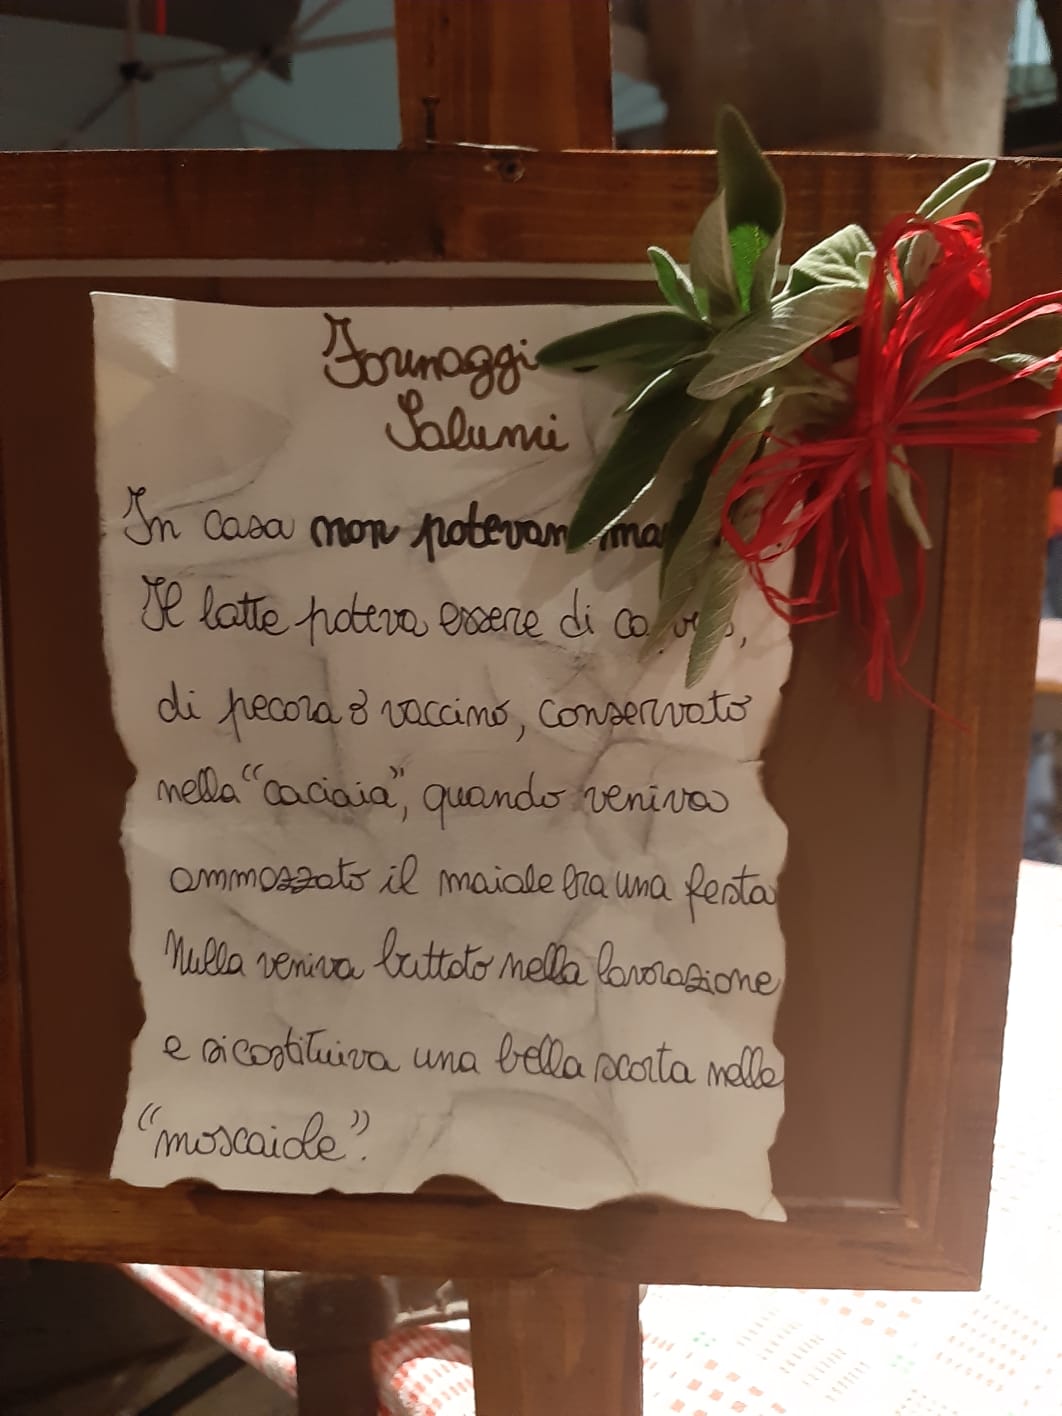 Formaggi
Salumi
In casa non potevan
Il latte poteva essere di
di pecora o vaccino, conservato
nella "caciaia", quando veniva
ammazzato il maiale era una festa
Nulla veniva buttato nella lavorazione
e si costituiva una bella scorta nelle
"moscaiole".